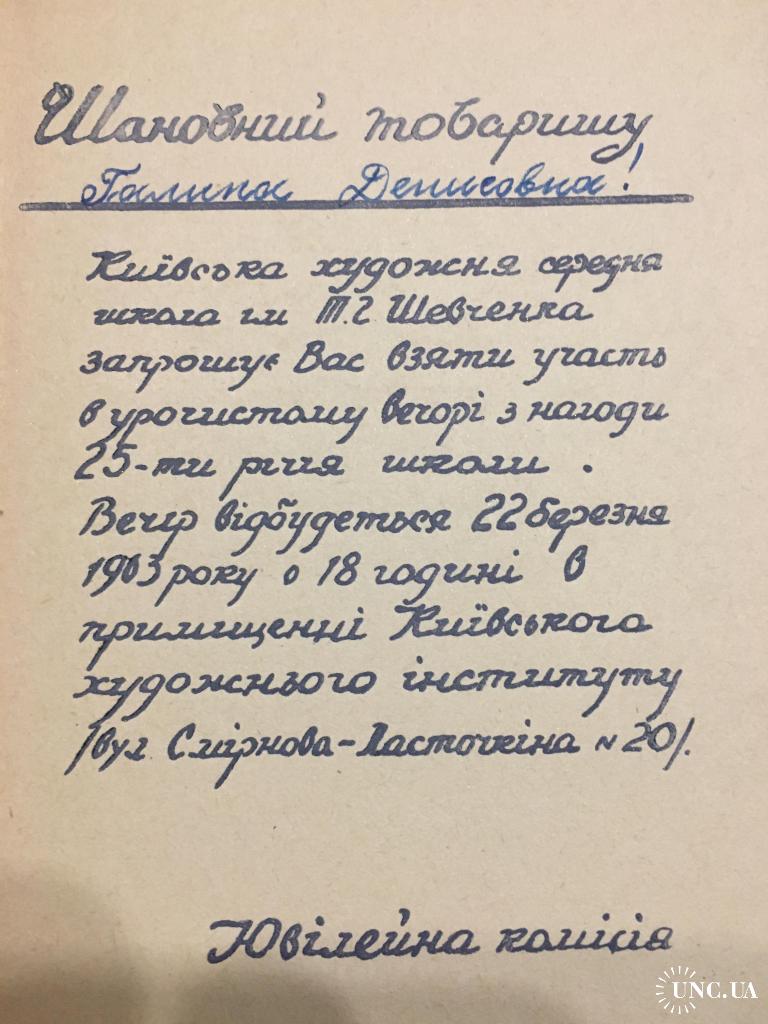 Шановний товаришу
Галина Денисовна!
Київська художня середня
школа ім Т.Г Шевченка
запрошує Вас взяти участь
в урочистому вечорі з нагоди
25-ти річчя школи .
Вечір відбудеться 22 березня
1963 року о 18 годині в
приміщенні Київського
художнього інституту
/вул Смірнова-Ласточкіна № 20/.
Ювілейна комісія
UNC.UA